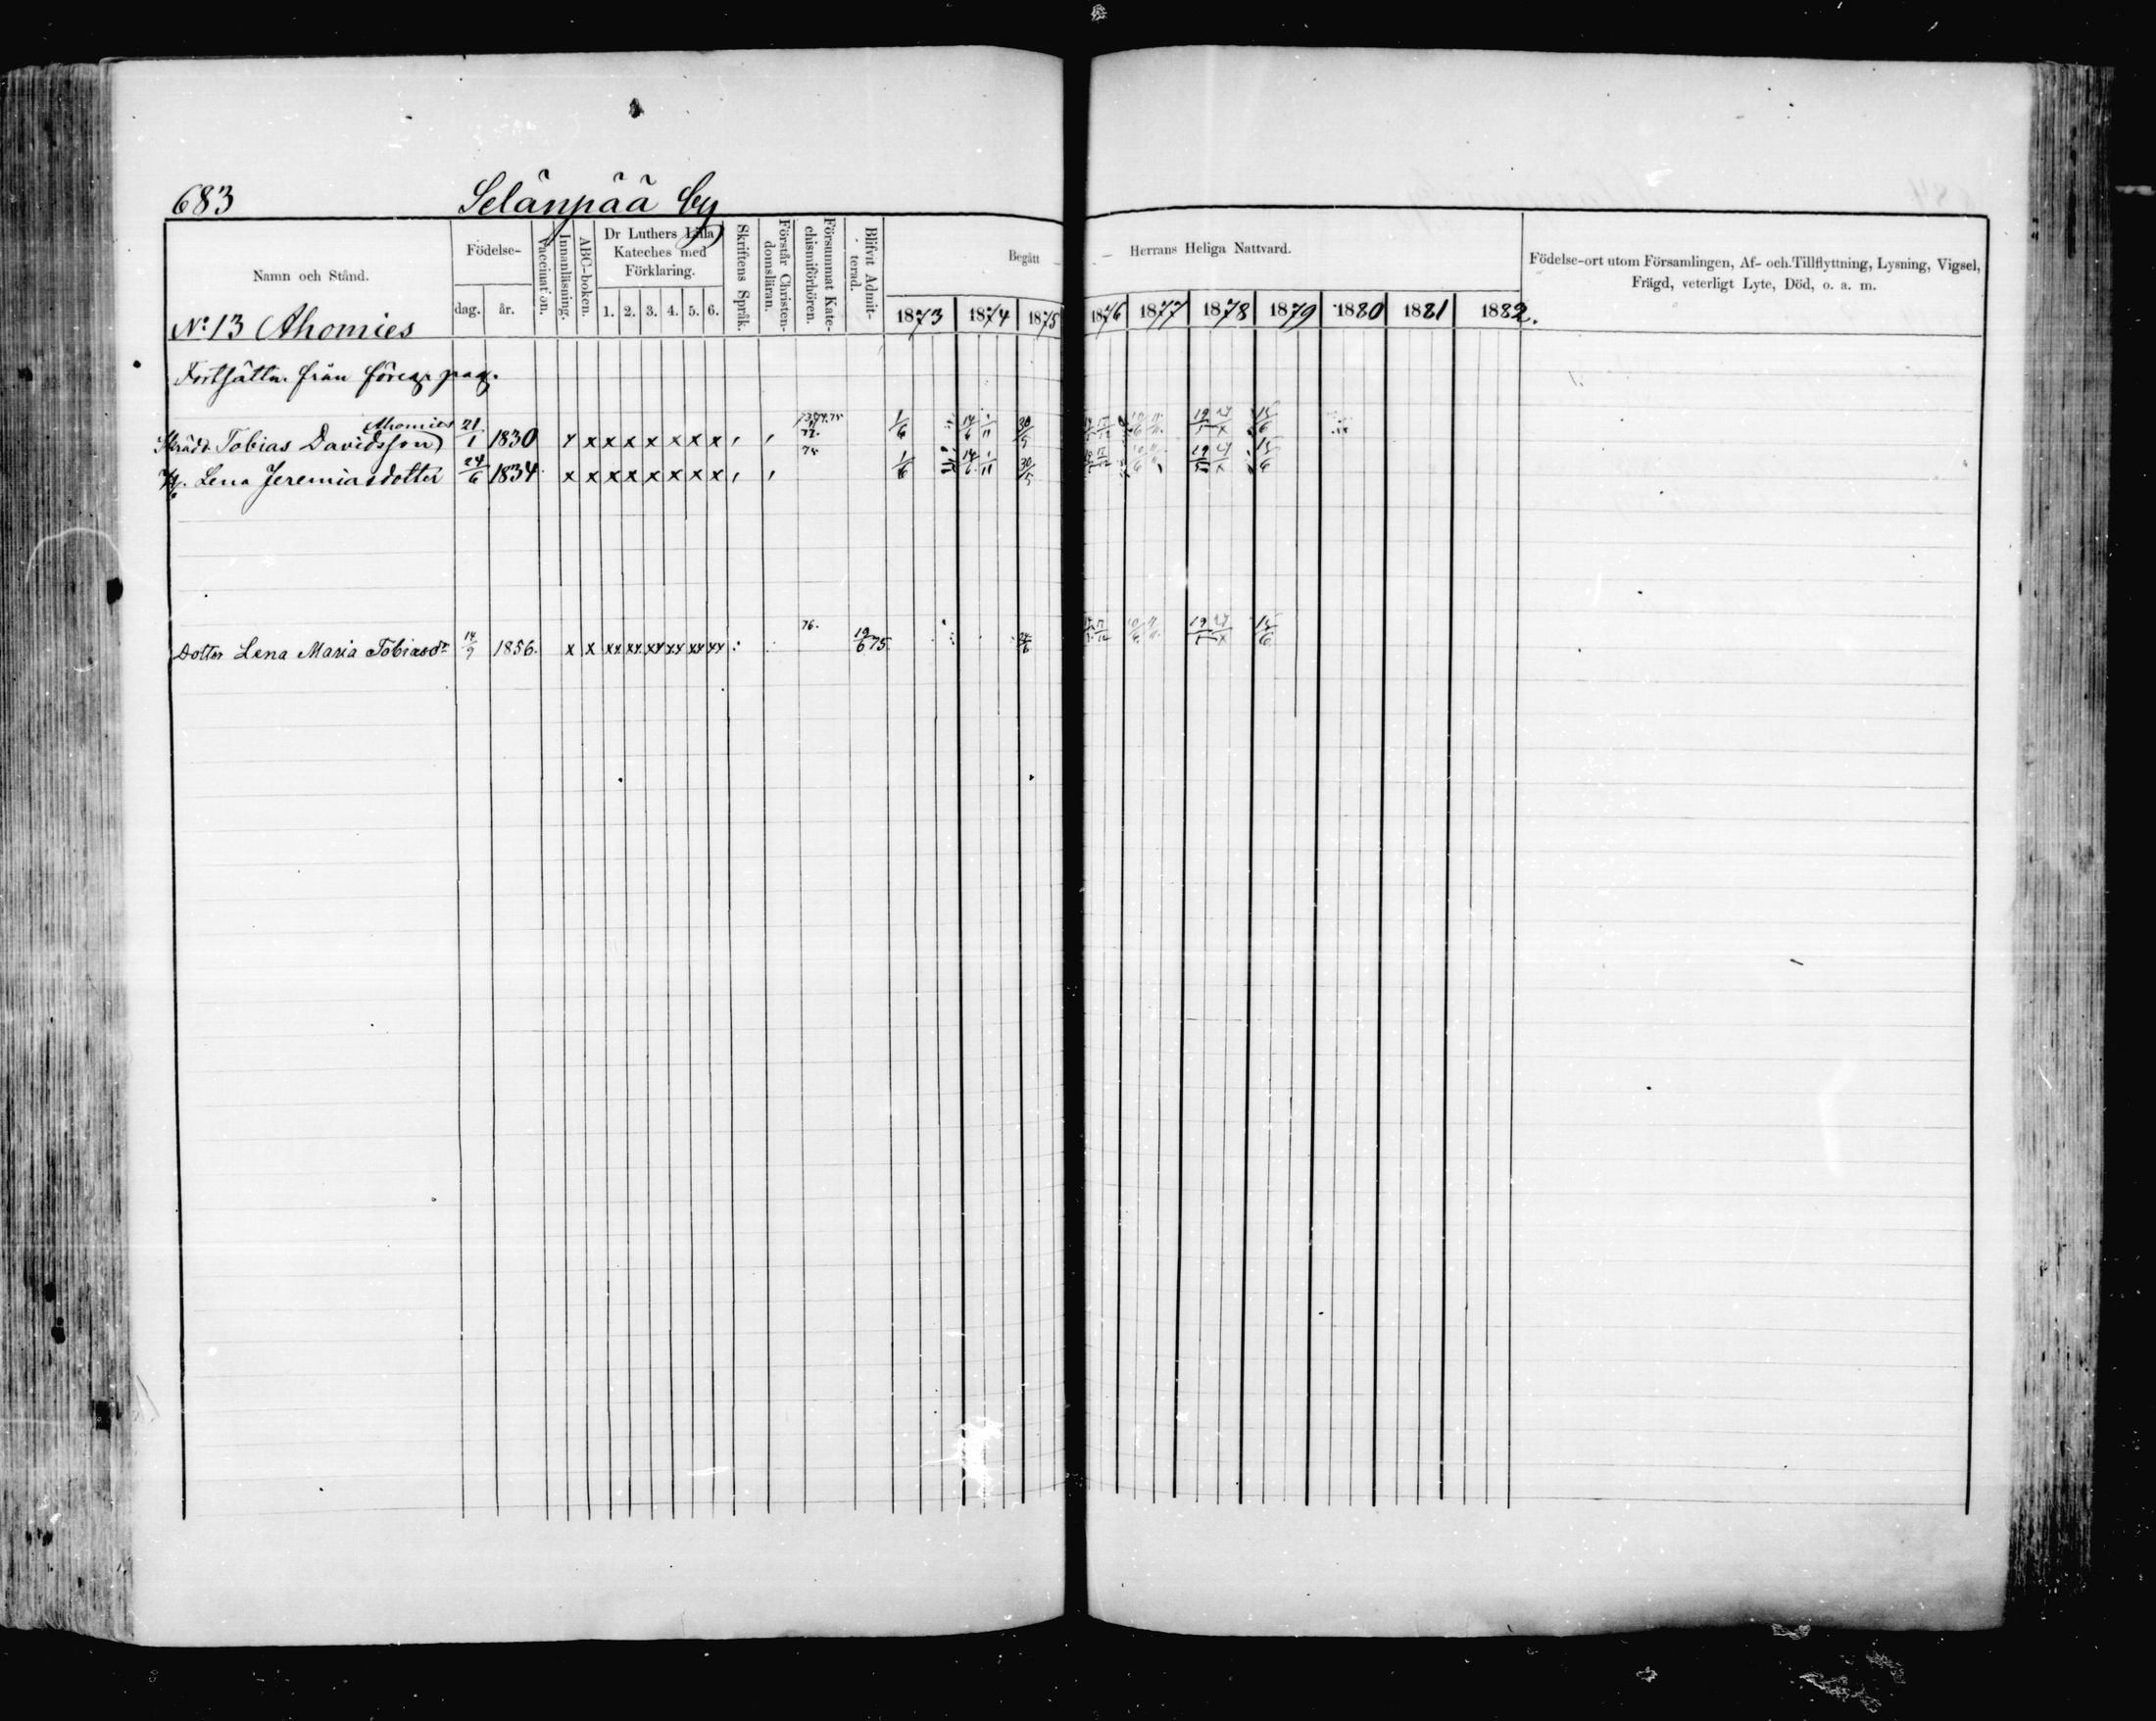 683 Selänpää by
Namn och Stånd.
Födelse-
dag. år.
Vaccination.
Innanläsning.
ABC-boken.
Dr Luthers Lilla
Kateches med
Förklaring.
1. 2. 3. 4. 5. 6.
Skriftens Språk.
Förstår Christen-
domsläran.
Försummat Kate-
chismiförhören.
Blifvit Admit-
terad.
Begått
Herrans Heliga Nattvard.
1873 1874 1875 1876 1877 1878 1879 1880 1881 1882.
Födelse-ort utom Församlingen, Af- och Tillflyttning, Lysning, Vigsel,
Frägd, veterligt Lyte, Död, o. a. m.
No 13 Ahomies
Fortsättn. från föreg. pag.
Ahomies
Skrädd. Tobias Davidsson 21/1 1830 x x x x x x x x 1/6 14/6 1/11 30/5 19/5 15/6
H. Lena Jeremiasdotter 24/6 1834 x x x x x x x x 75 1/6 14/6 1/11 30/5 19/5 15/6
Dotter Lena Maria Tobiasdr 14/9 1856. x x xx xx xx xx xx xx 76. 19/6 75 19/5 15/6